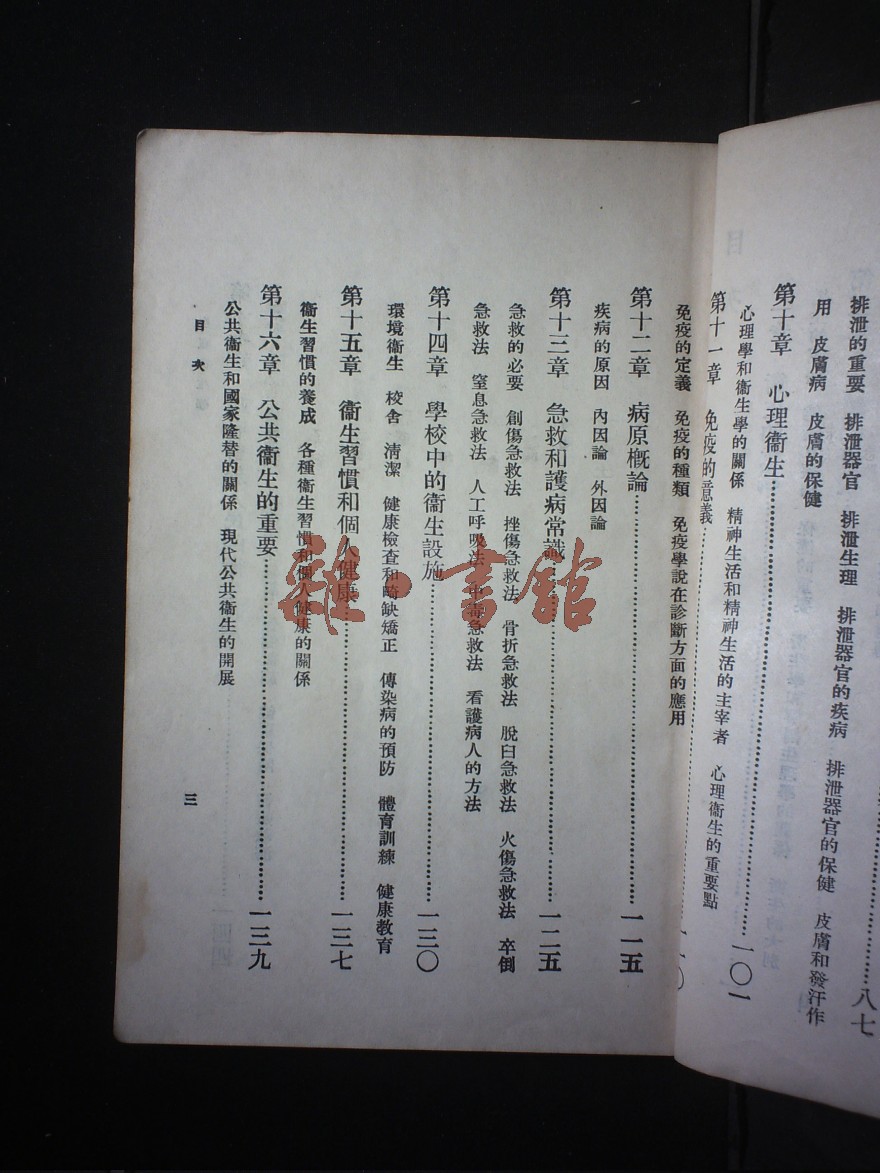 八七
排泄的重要　排泄器官　排泄生理　排泄器官的疾病　排泄器官的保健　皮膚和發汗作
用　皮膚病　皮膚的保健
第十章　心理衞生……一〇一
心理學和衞生學的關係　精神生活和精神生活的主宰者　心理衞生的重要點
第十一章　免疫的意義……一一〇
免疫的定義　免疫的種類　免疫學説在診斷方面的應用
第十二章　病原概論……一一五
疾病的原因　內因論　外因論
第十三章　急救和護病常識……一二五
急救的必要　創傷急救法　挫傷急救法　骨折急救法　脫臼急救法　火傷急救法　卒倒
急救法　窒息急救法　人工呼吸法　中毒急救法　看護病人的方法
第十四章　學校中的衞生設施……一三〇
環境衞生　校舍　清潔　健康檢查和畸缺矯正　傳染病的預防　體育訓練　健康教育
第十五章　衞生習慣和個人健康……一三七
衞生習慣的養成　各種衞生習慣和個人健康的關係
第十六章　公共衞生的重要……一三九
公共衞生和國家隆替的關係　現代公共衞生的開展
目次
三
雜·書館